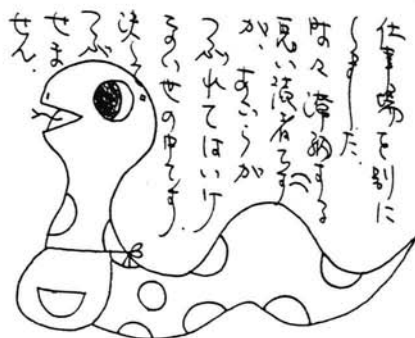 仕事場を別に
しました。
時々滞納する
悪い読者です
が、
つぶれてはいけ
ない世の中です。
決して
つぶ
せま
せん。